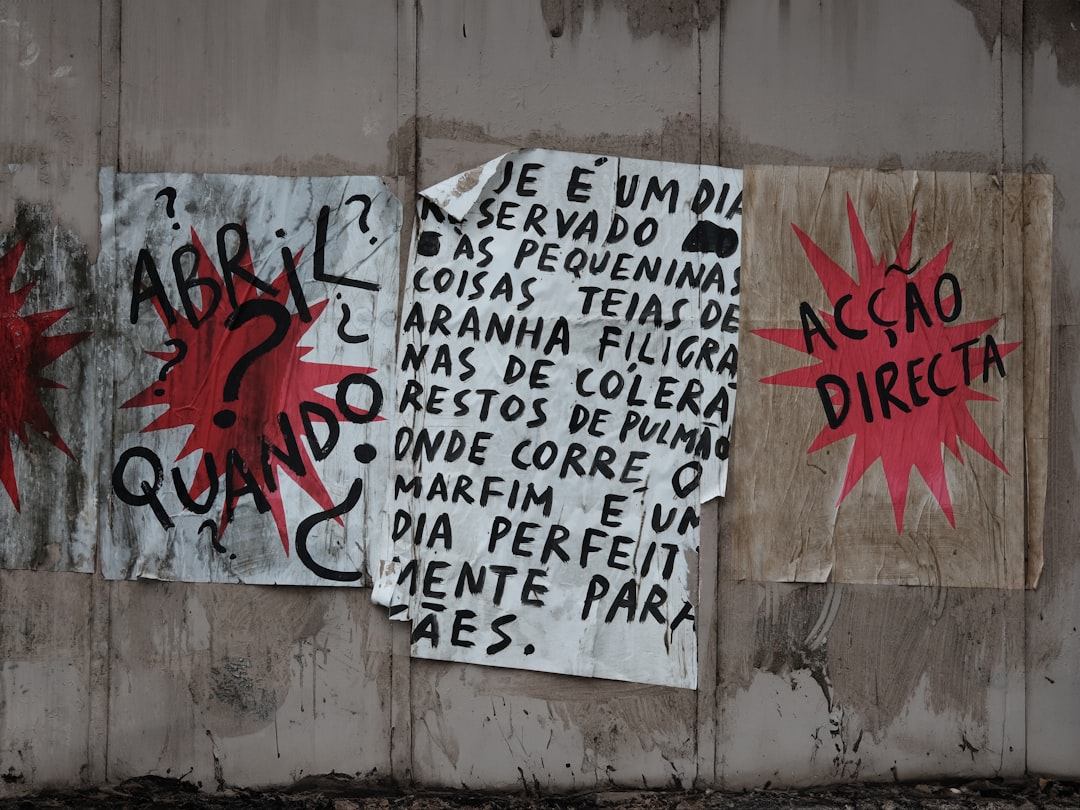 ?
?
ABRIL
?
?
?
QUANDO
?
¿
?
JE É UM DIA
RESERVADO
AS PEQUENINAS
COISAS TEIAS DE
ARANHA FILIGRA
NAS DE CÓLERA
RESTOS DE PULMÃO
ONDE CORRE O
MARFIM E UM
DIA PERFEIT
MENTE PARA
ÃES.
ACÇÃO
DIRECTA